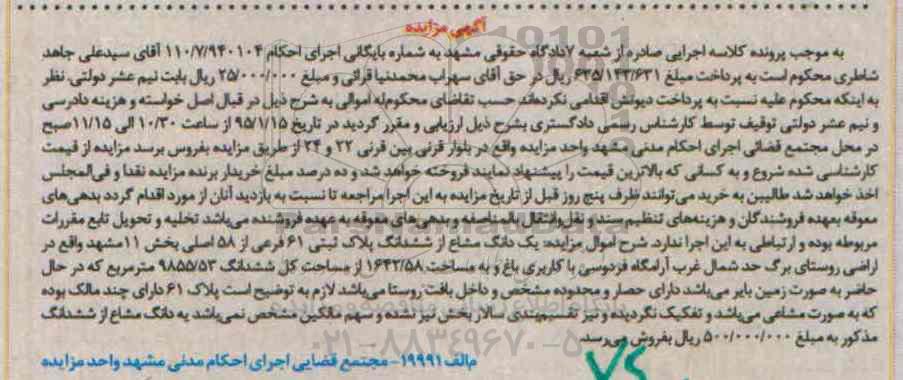 آگهی مزایده
به موجب پرونده کلاسه اجرایی صادره از شعبه ۷دادگاه حقوقی مشهد به شماره بایگانی اجرای احکام ۱۱۰/۷/۹۴۰۱۰۴ آقای سیدعلی جاهد
شاطری محکوم است به پرداخت مبلغ ۶۳۵/۱۴۳/۶۳۱ ریال در حق آقای سهراب محمدنیا قرائی و مبلغ ۲۵/۰۰۰/۰۰۰ ریال بابت نیم عشر دولتی. نظر
به اینکه محکوم علیه نسبت به پرداخت دیونش اقدامی نکرده‌اند حسب تقاضای محکوم‌له اموالی به شرح ذیل در قبال اصل خواسته و هزینه دادرسی
و نیم عشر دولتی توقیف توسط کارشناس رسمی دادگستری بشرح ذیل ارزیابی و مقرر گردید در تاریخ ۹۵/۱/۱۵ از ساعت ۱۰/۳۰ الی ۱۱/۱۵صبح
در محل مجتمع قضائی اجرای احکام مدنی مشهد واحد مزایده واقع در بلوار قرنی بین قرنی ۲۲ و ۲۴ از طریق مزایده بفروش برسد مزایده از قیمت
کارشناسی شده شروع و به کسانی که بالاترین قیمت را پیشنهاد نمایند فروخته خواهد شد و ده درصد مبلغ خریدار برنده مزایده نقدا و فی‌المجلس
اخذ خواهد شد طالبین به خرید می‌توانند ظرف پنج روز قبل از تاریخ مزایده به این اجرا مراجعه تا نسبت به بازدید آنان از مورد اقدام گردد بدهی‌های
معوقه بعهده فروشندگان و هزینه‌های تنظیم سند و نقل‌وانتقال بالمناصفه و بدهی های معوقه به عهده فروشنده می‌باشد تخلیه و تحویل تابع مقررات
مربوطه بوده و ارتباطی به این اجرا ندارد. شرح اموال مزایده: یک دانگ مشاع از ششدانگ پلاک ثبتی ۶۱ فرعی از ۵۸ اصلی بخش ۱۱مشهد واقع در
اراضی روستای برگ حد شمال غرب آرامگاه فردوسی با کاربری باغ و به مساحت ۱۶۴۲/۵۸ از مساحت کل ششدانگ ۹۸۵۵/۵۳ مترمربع که در حال
حاضر به صورت زمین بایر می‌باشد دارای حصار و محدوده مشخص و داخل بافت روستا می‌باشد لازم به توضیح است پلاک ۶۱ دارای چند مالک بوده
که به صورت مشاعی می‌باشد و تفکیک نگردیده و نیز تقسیم‌بندی سالار بخش نیز نشده و سهم مالکین مشخص نمی‌باشد یه دانگ مشاع از ششدانگ
مذکور به مبلغ ۵۰۰/۰۰۰/۰۰۰ ریال بفروش می‌رسد.
م‌الف ۱۹۹۹۱- مجتمع قضایی اجرای احکام مدنی مشهد واحد مزایده
۰۲۱-۸۸۳۴۹۶۷۰-۵